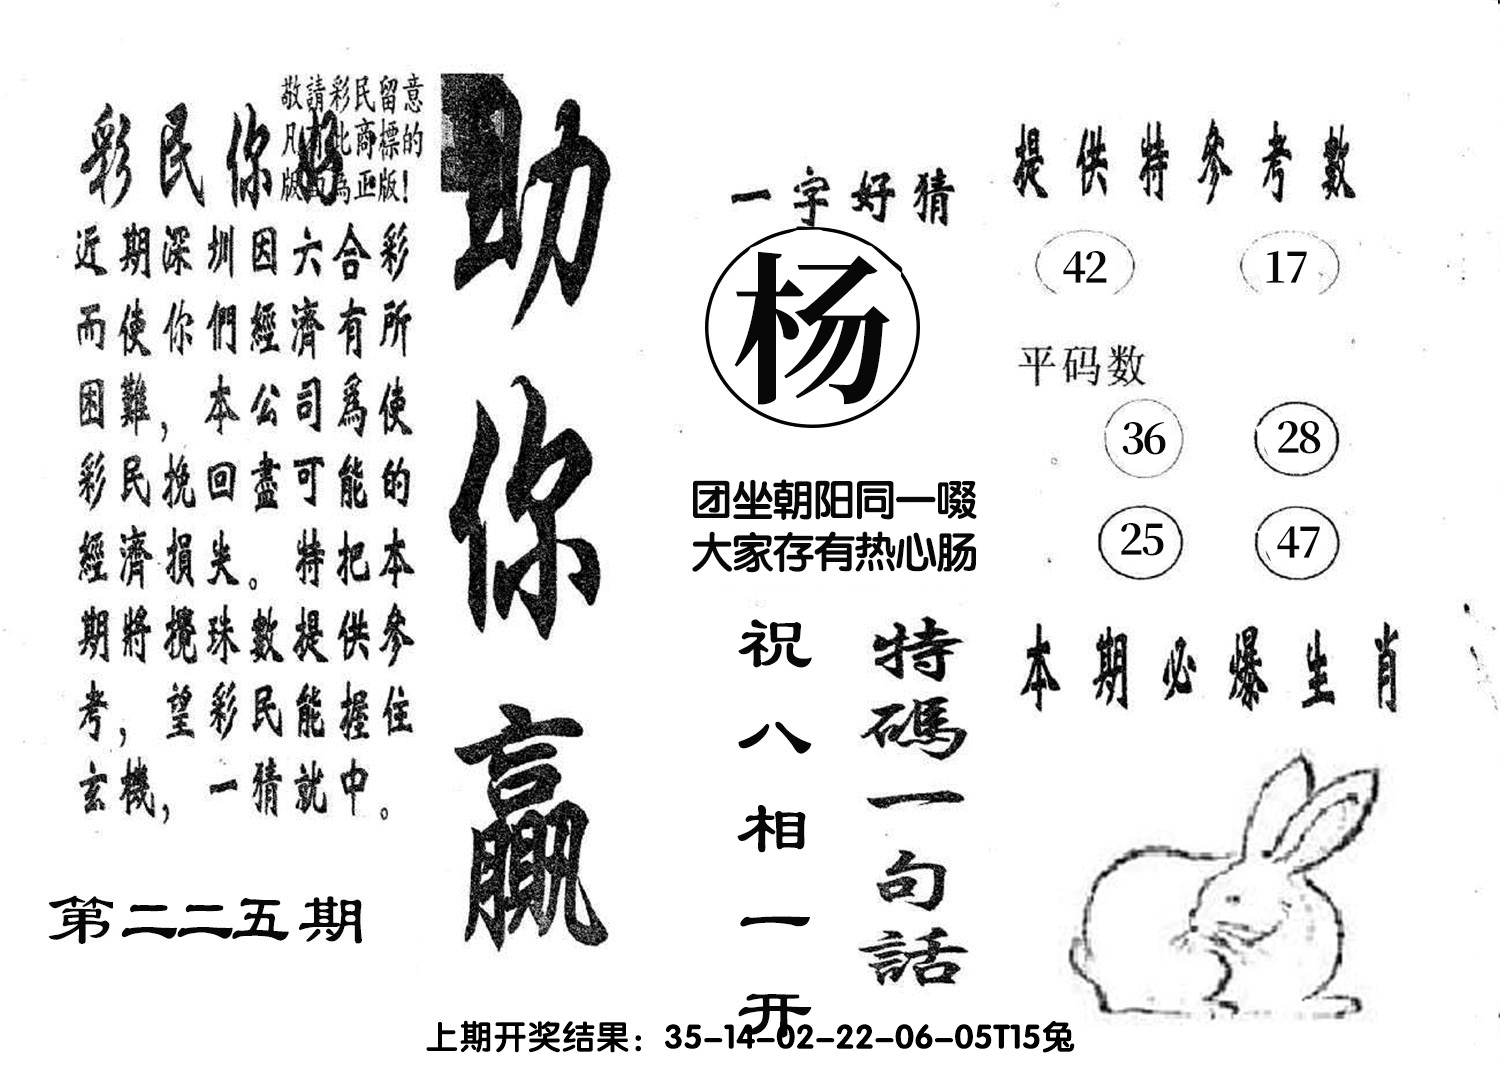 敬請彩民留意
凡有此商標的
版面為正版！
彩民你好
近期深圳因六合彩
而使你們經濟有所
困難，本公司爲使
彩民挽回盡可能的
經濟損失。特把本
期將攪珠數提供參
考，望彩民能握住
玄機，一猜就中。
第二二五期
助你赢
一字好猜
杨
团坐朝阳同一啜
大家存有热心肠
特碼一句話
祝八相一开
提供特參考數
42 17
平码数
36 28
25 47
本期必爆生肖
上期开奖结果：35-14-02-22-06-05T15兔